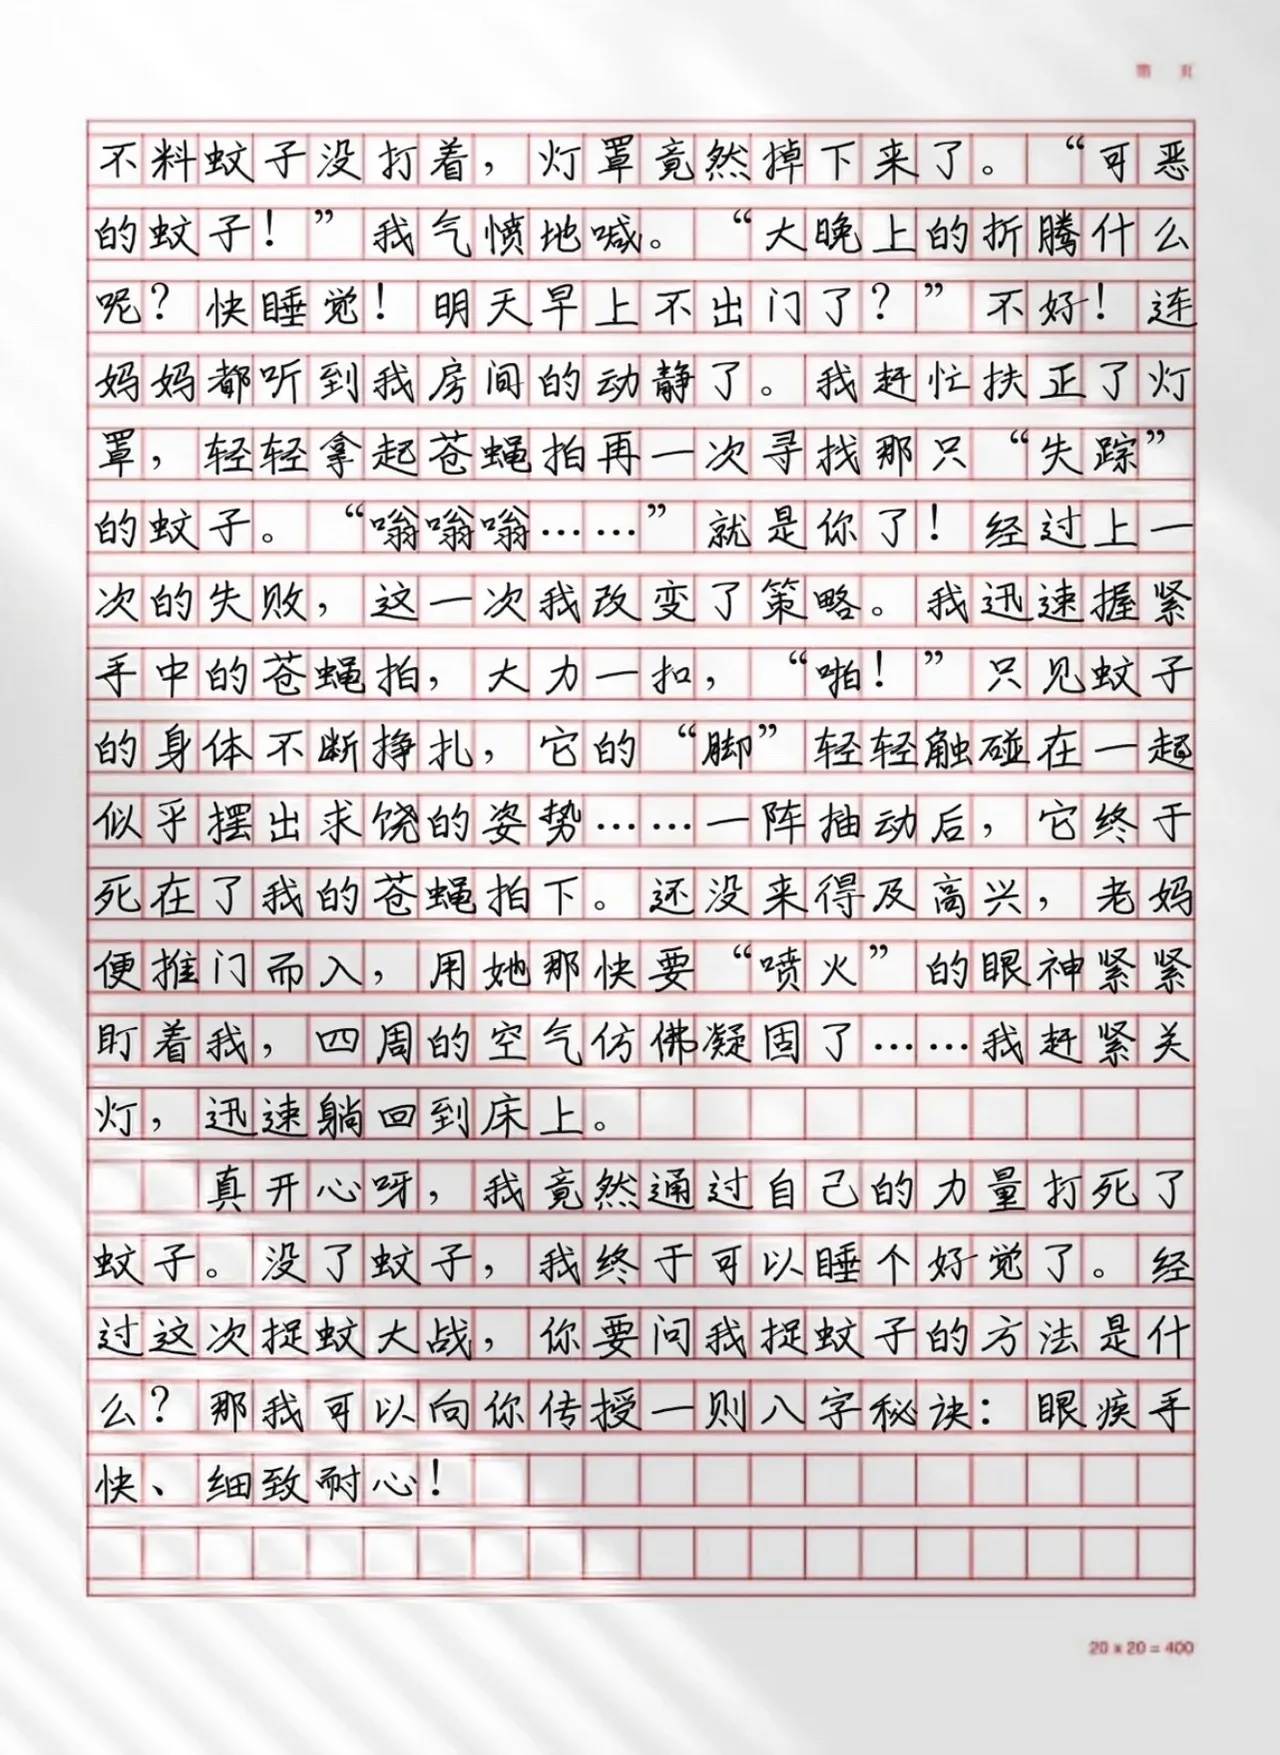 第 页
不料蚊子没打着，灯罩竟然掉下来了。“可恶
的蚊子！”我气愤地喊。“大晚上的折腾什么
呢？快睡觉！明天早上不出门了？”不好！连
妈妈都听到我房间的动静了。我赶忙扶正了灯
罩，轻轻拿起苍蝇拍再一次寻找那只“失踪”
的蚊子。“嗡嗡嗡……”就是你了！经过上一
次的失败，这一次我改变了策略。我迅速握紧
手中的苍蝇拍，大力一扣，“啪！”只见蚊子
的身体不断挣扎，它的“脚”轻轻触碰在一起
似乎摆出求饶的姿势……一阵抽动后，它终于
死在了我的苍蝇拍下。还没来得及高兴，老妈
便推门而入，用她那快要“喷火”的眼神紧紧
盯着我，四周的空气仿佛凝固了……我赶紧关
灯，迅速躺回到床上。
真开心呀，我竟然通过自己的力量打死了
蚊子。没了蚊子，我终于可以睡个好觉了。经
过这次捉蚊大战，你要问我捉蚊子的方法是什
么？那我可以向你传授一则八字秘诀：眼疾手
快、细致耐心！
20×20=400